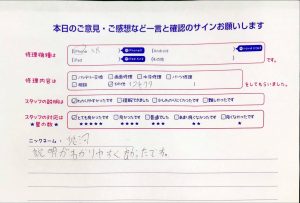 本日のご意見・ご感想など一言と確認のサインお願いします
修理機種は
iPhone XR
Android
iPad
その他
修理内容は
バッテリー交換 画面修理 水没修理 パーツ修理
相談 その他
をしてもらいました。
スタッフの説明は
わかりやすかった 理解できました 少しわかりにくかった 難しかった
スタッフの対応は
とても良かった 良かった 普通でした あまり良くなかった 良くなかった
★星の数★
★★★★★ ★★★★ ★★★ ★★ ★
ニックネーム：
説明がわかりやすく助かったです。